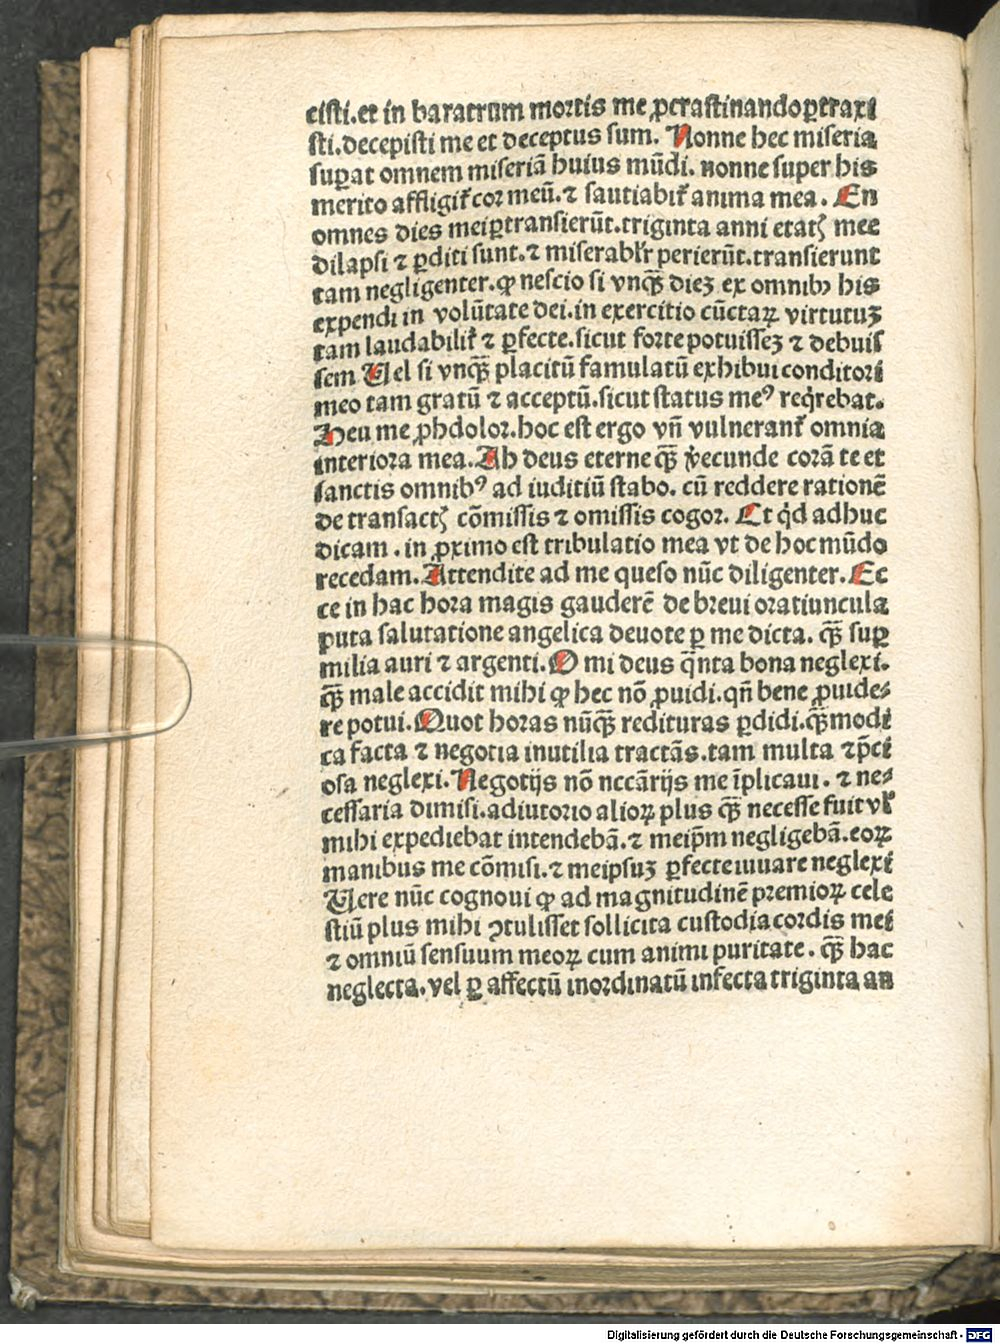 cisti.et in baratrum mortis me ꝓcrastinando ꝑtraxi
sti.decepisti me et deceptus sum. Nonne hec miseria
suꝑat omnem miseriā huius mūdi. nonne super his
merito affligit᷑ cor meū.⁊ sautiabit᷑ anima mea. En
omnes dies mei ꝑtransierūt.triginta anni etatꝭ mee
dilapsi ⁊ ꝑditi sunt.⁊ miserabl'r perierūt.transierunt
tam negligenter.ꝙ nescio si vnqꝫ̄ dieꝫ ex omnibꝰ his
expendi in volūtate dei.in exercitio cūctaꝝ virtutuꝫ
tam laudabilit᷑ ⁊ ꝑfecte.sicut forte potuisseꝫ ⁊ debuis
sem Uel si vnqꝫ̄ placitū famulatū exhibui conditori
meo tam gratū ⁊ acceptū.sicut status meꝰ reqͥrebat.
Heu me ꝓhdolor.hoc est ergo vn̄ vulnerant᷑ omnia
interiora mea. Ah deus eterne qꝫ̄ v̓ecunde corā te et
sanctis omnibꝰ ad iuditiū stabo. cū reddere rationē
de transactꝭ cōmissis ⁊ omissis cogor. Et qͥd adhuc
dicam . in ꝓximo est tribulatio mea vt de hoc mūdo
recedam. Attendite ad me queso nūc diligenter. Ec
ce in hac hora magis gauderē de breui oratiuncula
puta salutatione angelica deuote ꝑ me dicta. qꝫ̄ suꝑ
milia auri ⁊ argenti. O mi deus qͣ̄nta bona neglexi.
qꝫ̄ male accidit mihi ꝙ hec nō ꝓuidi.qn̄ bene ꝓuide⸗
re potui. Quot horas nūqꝫ̄ redituras ꝑdidi.qꝫ̄ modi
ca facta ⁊ negotia inutilia tractās.tam multa ⁊ p̄ci
osa neglexi. Negotijs nō nccārijs me īplicaui. ⁊ ne⸗
cessaria dimisi.adiutorio alioꝝ plus qꝫ̄ necesse fuit vl'
mihi expediebat intendebā.⁊ meip̄m negligebā.eoꝝ
manibus me cōmisi.⁊ meipsuꝫ ꝑfecte iuuare neglexi
Uere nūc cognoui ꝙ ad magnitudinē premioꝝ cele
stiū plus mihi ꝯtulisset sollicita custodia cordis mei
⁊ omniū sensuum meoꝝ cum animi puritate. qꝫ̄ hac
neglecta.vel ꝑ affectū inordinatū infecta triginta an
Digitalisierung gefördert durch die Deutsche Forschungsgemeinschaft - DFG